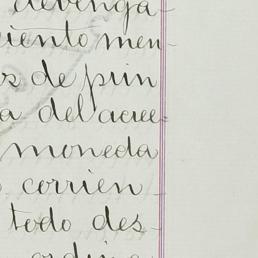 devenga
iento men-
s de prin
a del acree-
moneda
corrien
todo des-